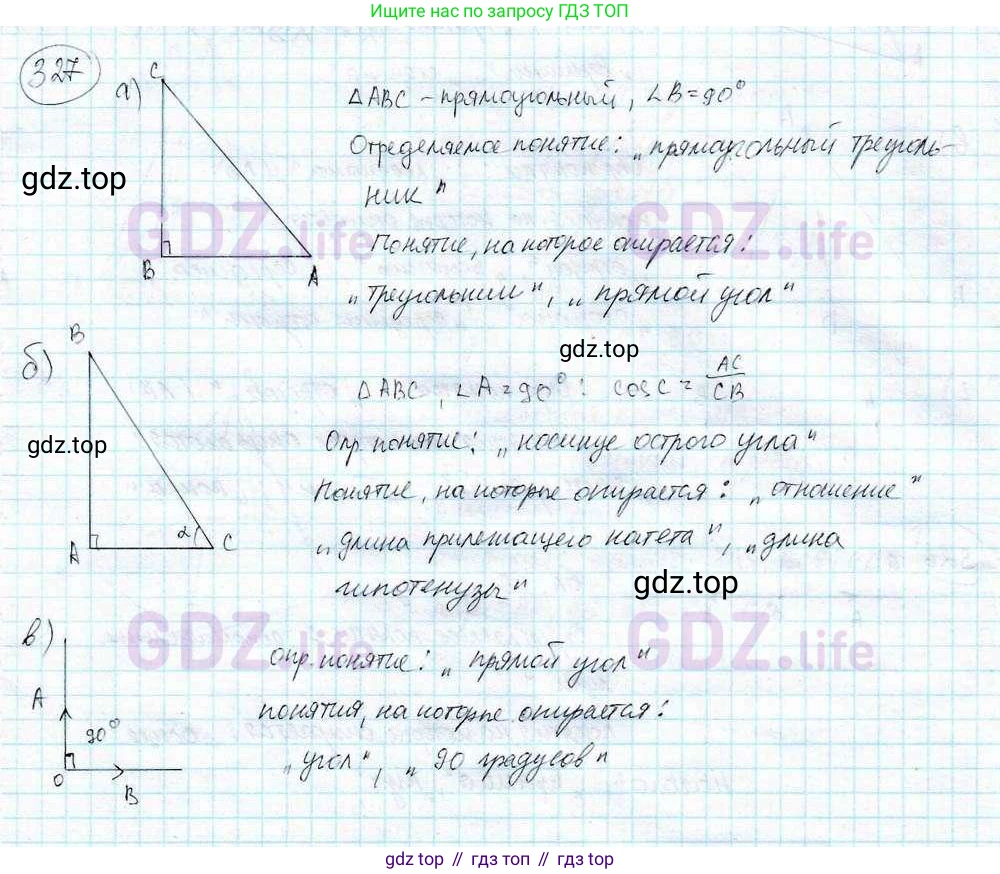 Ищите нас по запросу ГДЗ ТОП
327
а)
C
B
A
△ABC - прямоугольный, ∠B=90°
Определяемое понятие: „прямоугольный треуголь-
ник"
gdz.top
GDZ.life
GDZ.life
Понятие, на которое опирается:
„треугольник", „прямой угол"
gdz.top
б)
B
A
C
α
△ABC, ∠A=90°: cosC = AC/CB
gdz.top
Опр. понятие: „косинус острого угла"
Понятие, на которые опирается: „отношение"
„длина прилежащего катета", „длина
гипотенузы"
gdz.top
GDZ.life
GDZ.life
в)
A
90°
O
B
опр. понятие: „прямой угол"
понятия, на которые опирается:
„угол", „90 градусов"
gdz.top // гдз топ // гдз top